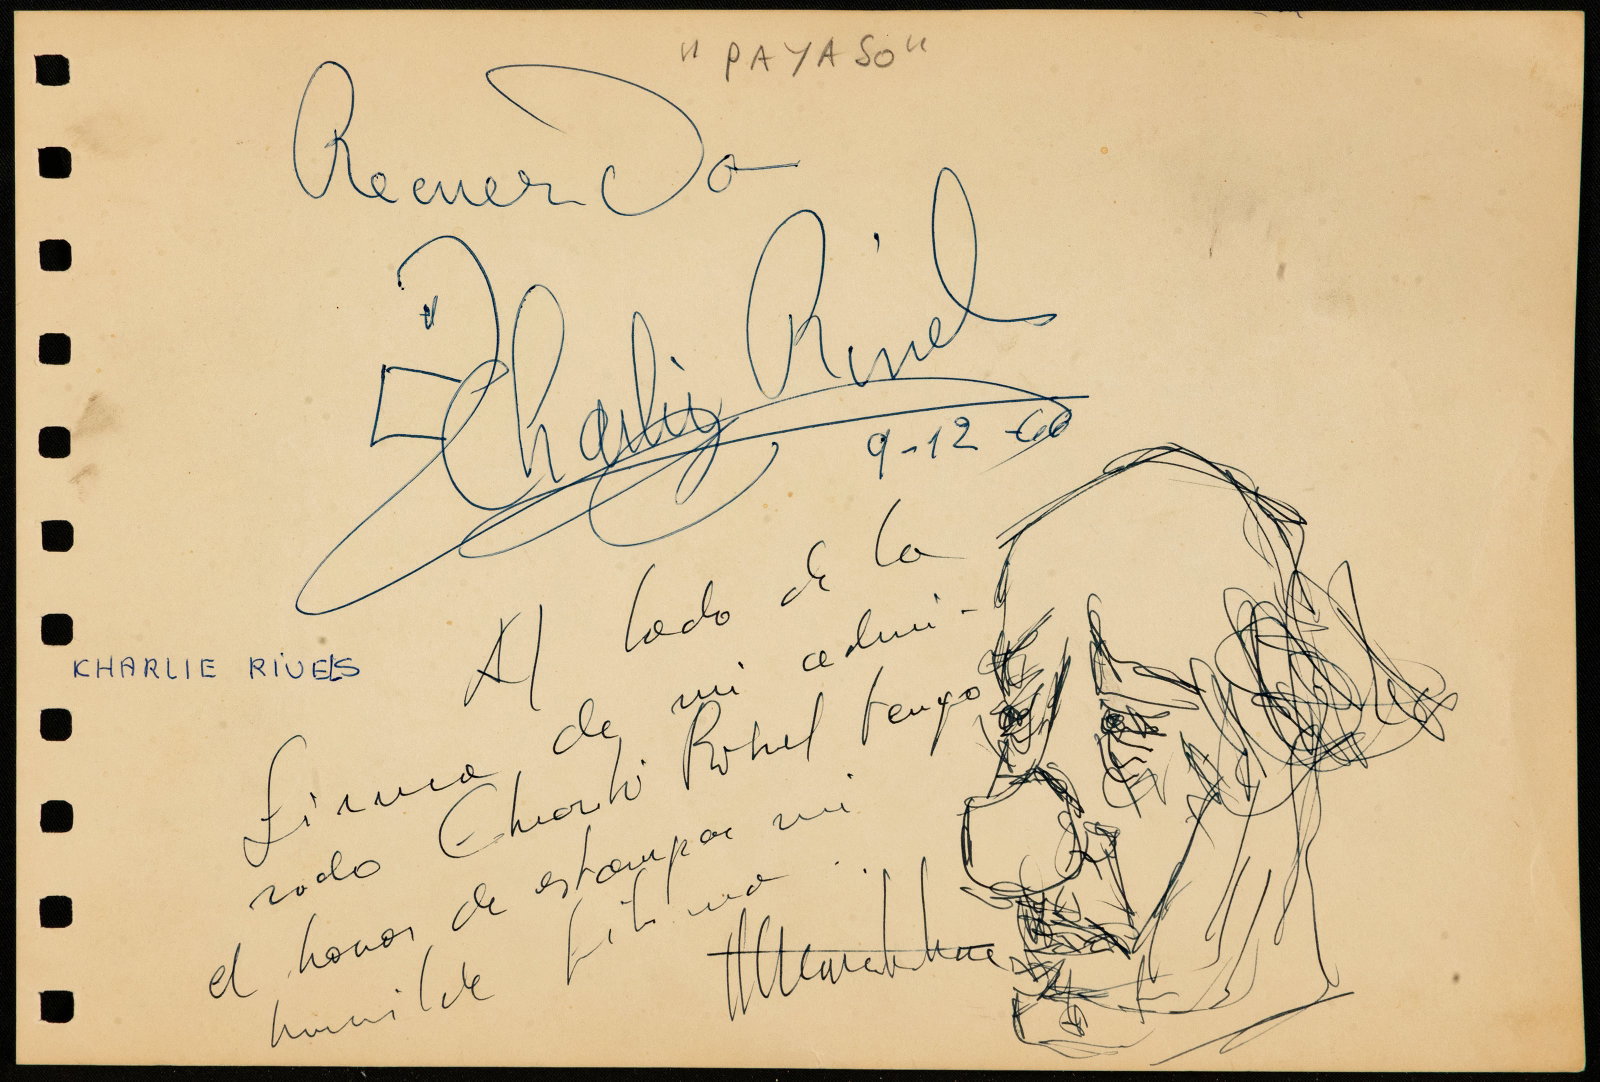 "PAYASO"
Recuerdo
Charlie Rivel
9-12-60
KHARLIE RIVELS
Al lado de la
firma de mi admi-
rado Charli Rivel tengo
el honor de estampar mi
humilde firma.